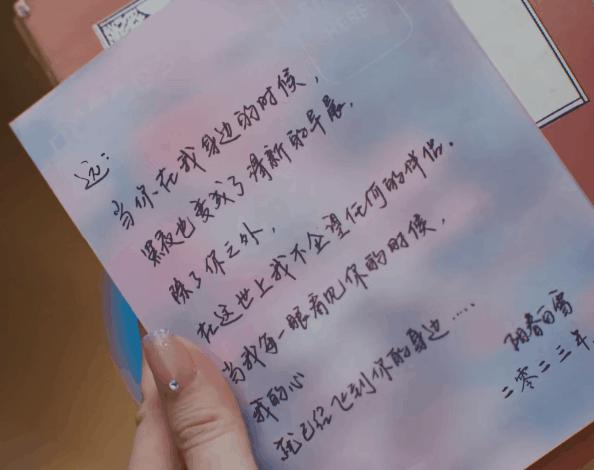 远：
当你在我身边的时候，
黑夜也变成了清新的早晨，
除了你之外，
在这世上我不企望任何的伴侣。
当我每一眼看见你的时候，
我的心
就已经飞到你的身边……
阳春白雪
二零二三年